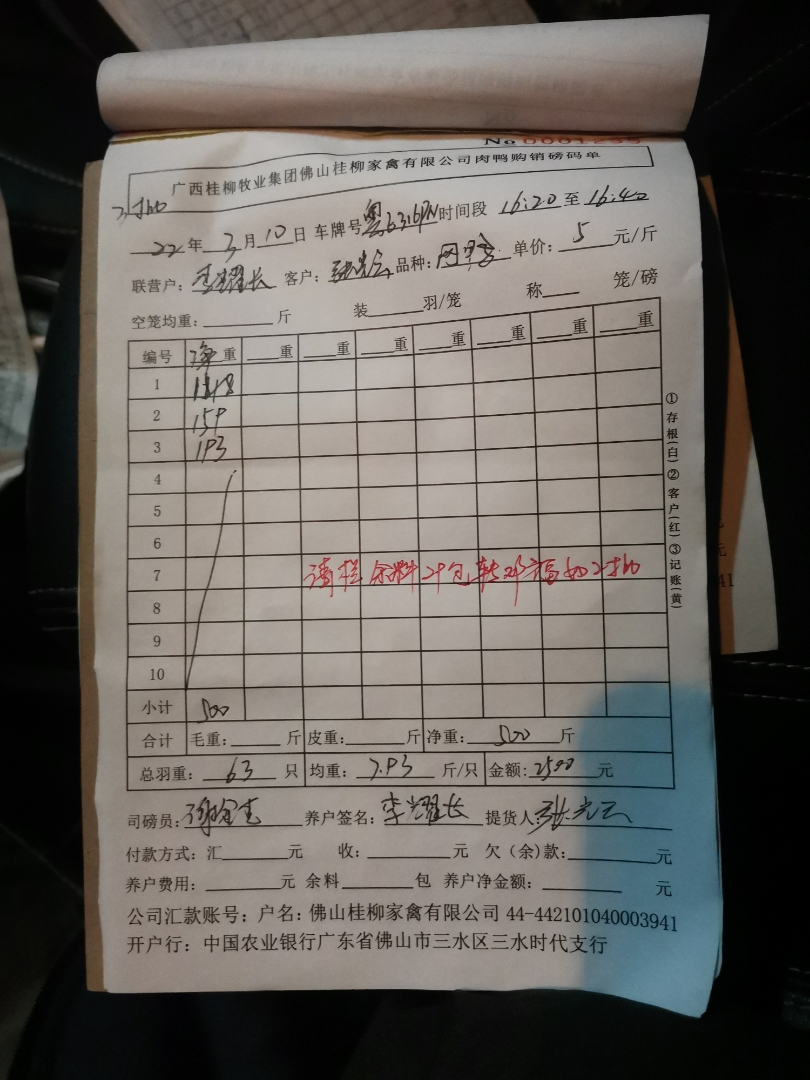 No 0001235
广西桂柳牧业集团佛山桂柳家禽有限公司肉鸭购销磅码单
22年 3月10日 车牌号 粤 时间段 16:20 至 16:40
联营户: 李耀长 客户: 品种: 单价: 5 元/斤
空笼均重: 斤 装 羽/笼 称 笼/磅
编号 净重 重 重 重 重 重 重
1 148
2 159
3 193
4
5
6
7 清栏余料 包转邓福如
8
9
10
小计 500
合计 毛重: 斤 皮重: 斤 净重: 500 斤
总羽重: 63 只 均重: 7.93 斤/只 金额: 2500 元
司磅员: 养户签名: 李耀长 提货人: 张
付款方式: 汇 元 收: 元 欠(余)款: 元
养户费用: 元 余料 包 养户净金额: 元
公司汇款账号: 户名: 佛山桂柳家禽有限公司 44-442101040003941
开户行: 中国农业银行广东省佛山市三水区三水时代支行
①存根(白)②客户(红)③记账(黄)